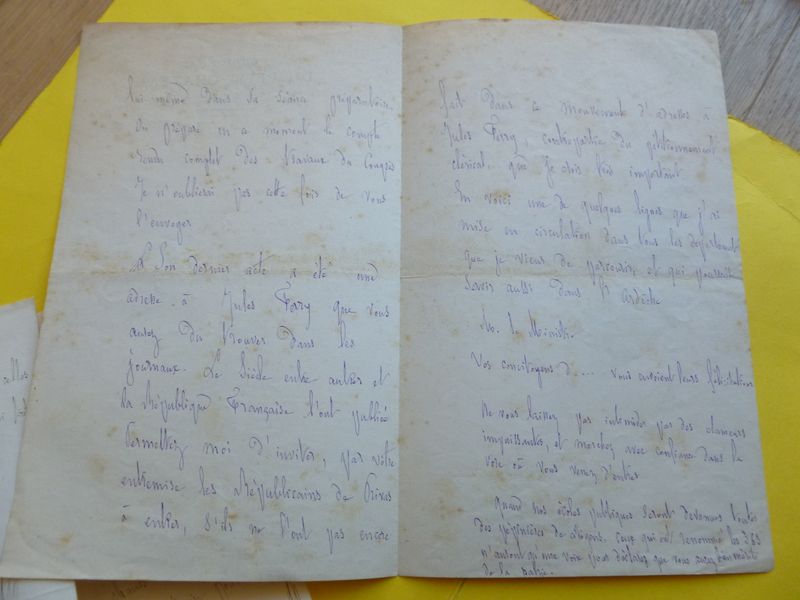 lui même dans sa séance préparatoire.
On prépare en ce moment le compte
rendu complet des travaux du Congrès
Je n'oublierai pas cette fois de vous
l'envoyer
Son dernier acte a été une
adresse à Jules Ferry que vous
avez du trouver dans les
journaux. Le Siècle entre autres et
la République Française l'ont publiée
Permettez moi d'inviter, par votre
entremise les Républicains de Privas
à entrer, s'ils ne l'ont pas encore
fait dans ce mouvement d'adresses à
Jules Ferry, contrepartie du pétitionnement
clérical, que je crois très important
En voici une de quelques lignes que j'ai
mise en circulation dans tous les départements
que je viens de parcourir et qui pourrait
servir aussi dans l'Ardèche
M. le Ministre.
Vos concitoyens d ... vous envoient leurs félicitations
Ne vous laissez pas intimider par des clameurs
impuissantes, et marchez avec confiance dans la
voie où vous venez d'entrer
Quand nos écoles publiques seront devenues toutes
des pépinières de citoyens, ceux qui ont renommé les 363
n'auront qu'une voix pour déclarer que vous avez bien mérité
de la patrie.